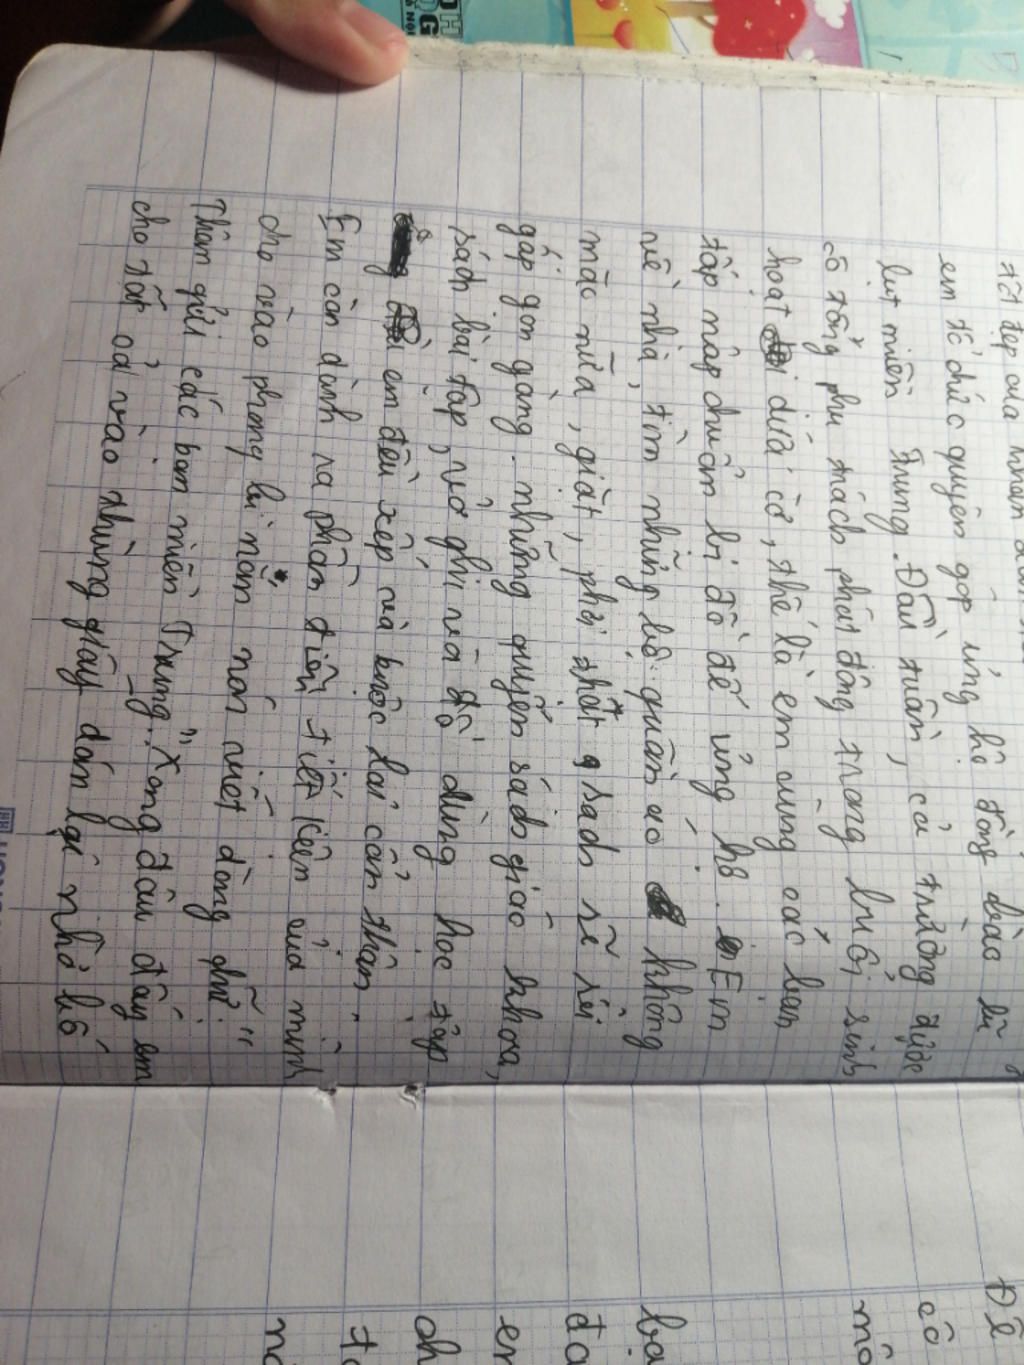 tốt đẹp của nhân dân
em tổ chức quyên góp ủng hộ đồng bào lũ
lụt miền Trung. Đầu tuần, cả trường được
cô tổng phụ trách phát động trong buổi sinh
hoạt dưới cờ, thế là em cùng các bạn
tấp nập chuẩn bị đồ để ủng hộ. Em
về nhà, tìm những bộ quần áo không
mặc nữa, giặt, phơi thật sạch sẽ rồi
gấp gọn gàng. những quyển sách giáo khoa,
sách bài tập, vở ghi và đồ dùng học tập
em đều xếp và buộc lại cẩn thận.
Em còn dành ra phần tiền tiết kiệm của mình
cho vào phong bì nắn nót viết dòng chữ: "
Thân gửi các bạn miền Trung". Xong đâu đấy em
cho tất cả vào thùng giấy dán lại nhờ bố
OH
G
Đề
cô
mô
bạ
đa
en
ch